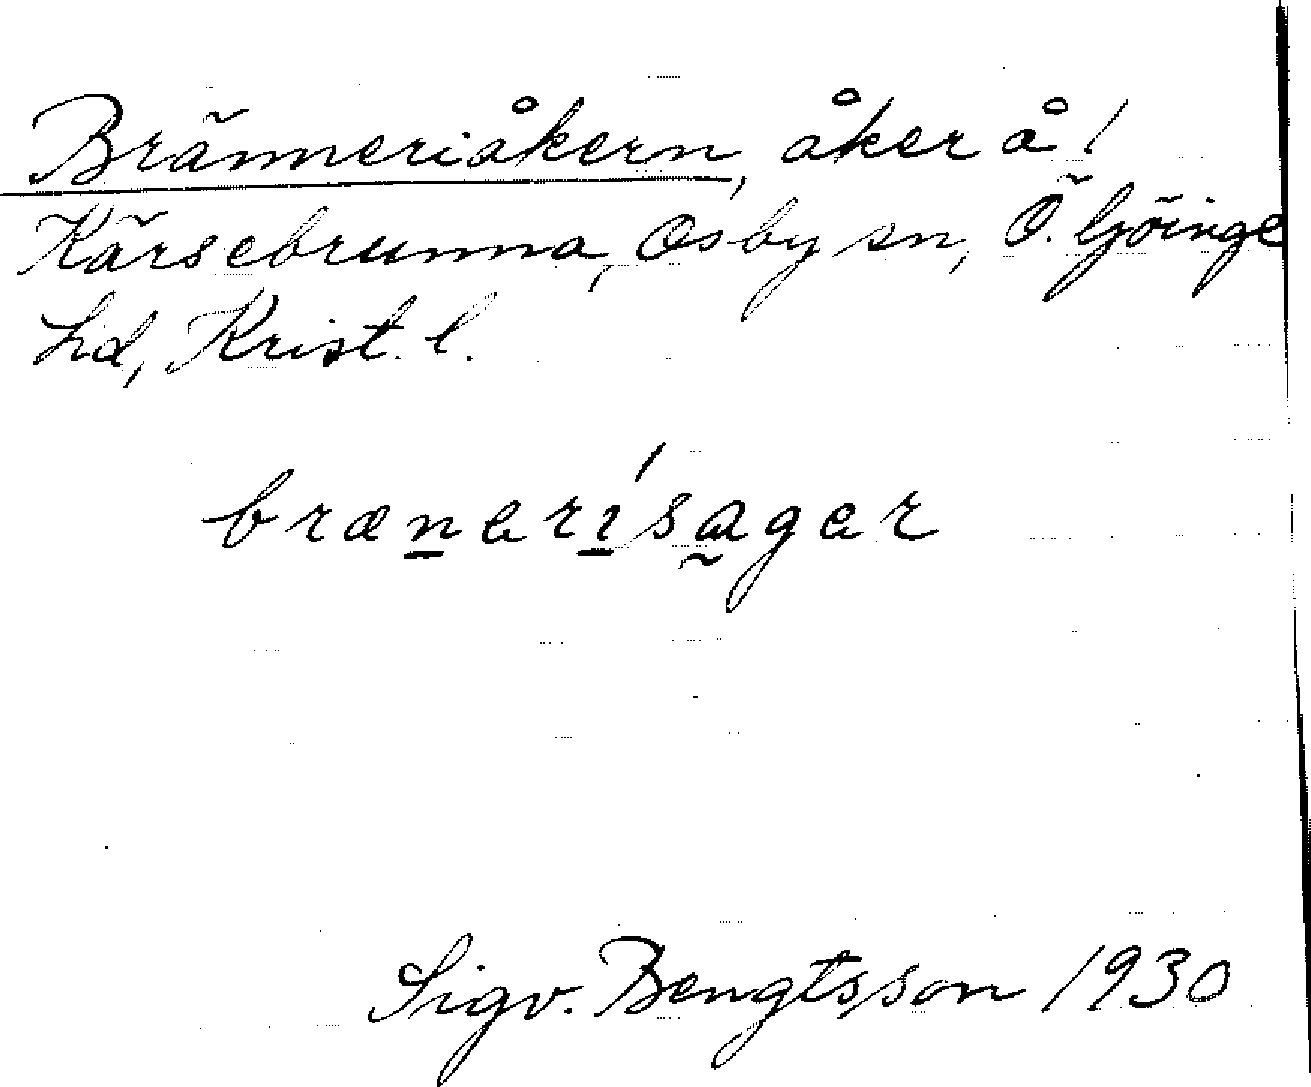 Bränneriåkern, åker å 1
Kärsebrunna, Osby sn, Ö. Göinge
hd, Krist. l.
brænerisager
Sigv. Bengtsson 1930